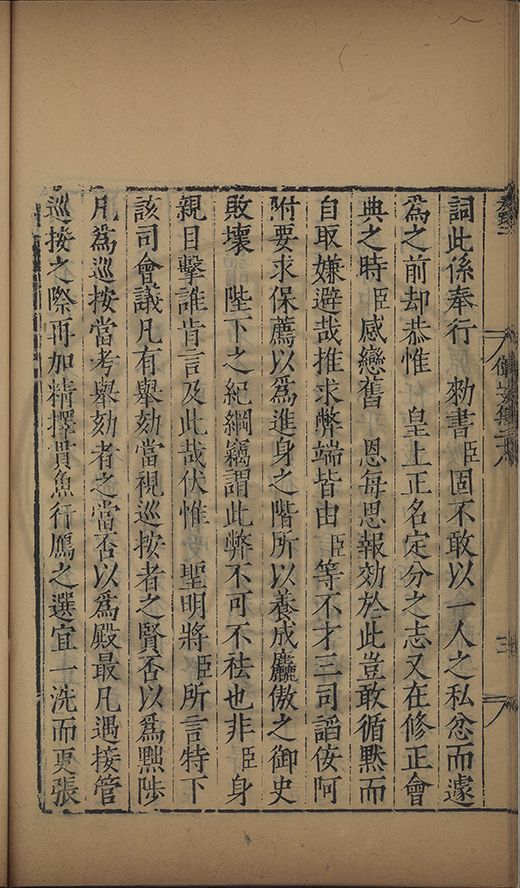 詞此係奉行　勑書臣固不敢以一人之私忿而遽
為之前却恭惟　皇上正名定分之志又在修正會
典之時臣感戀舊　恩每思報効於此豈敢循默而
自取嫌避哉推求弊端皆由臣等不才三司謟佞阿
附要求保薦以為進身之階所以養成麤傲之御史
敗壞　陛下之紀綱竊謂此弊不可不袪也非臣身
親目擊誰肯言及此哉伏惟　聖明將臣所言特下
該司會議凡有舉劾當視巡按者之賢否以為黜陟
凡為巡按當考舉劾者之當否以為殿最凡遇按管
巡按之際再加精擇貫魚行鴈之選宜一洗而更張